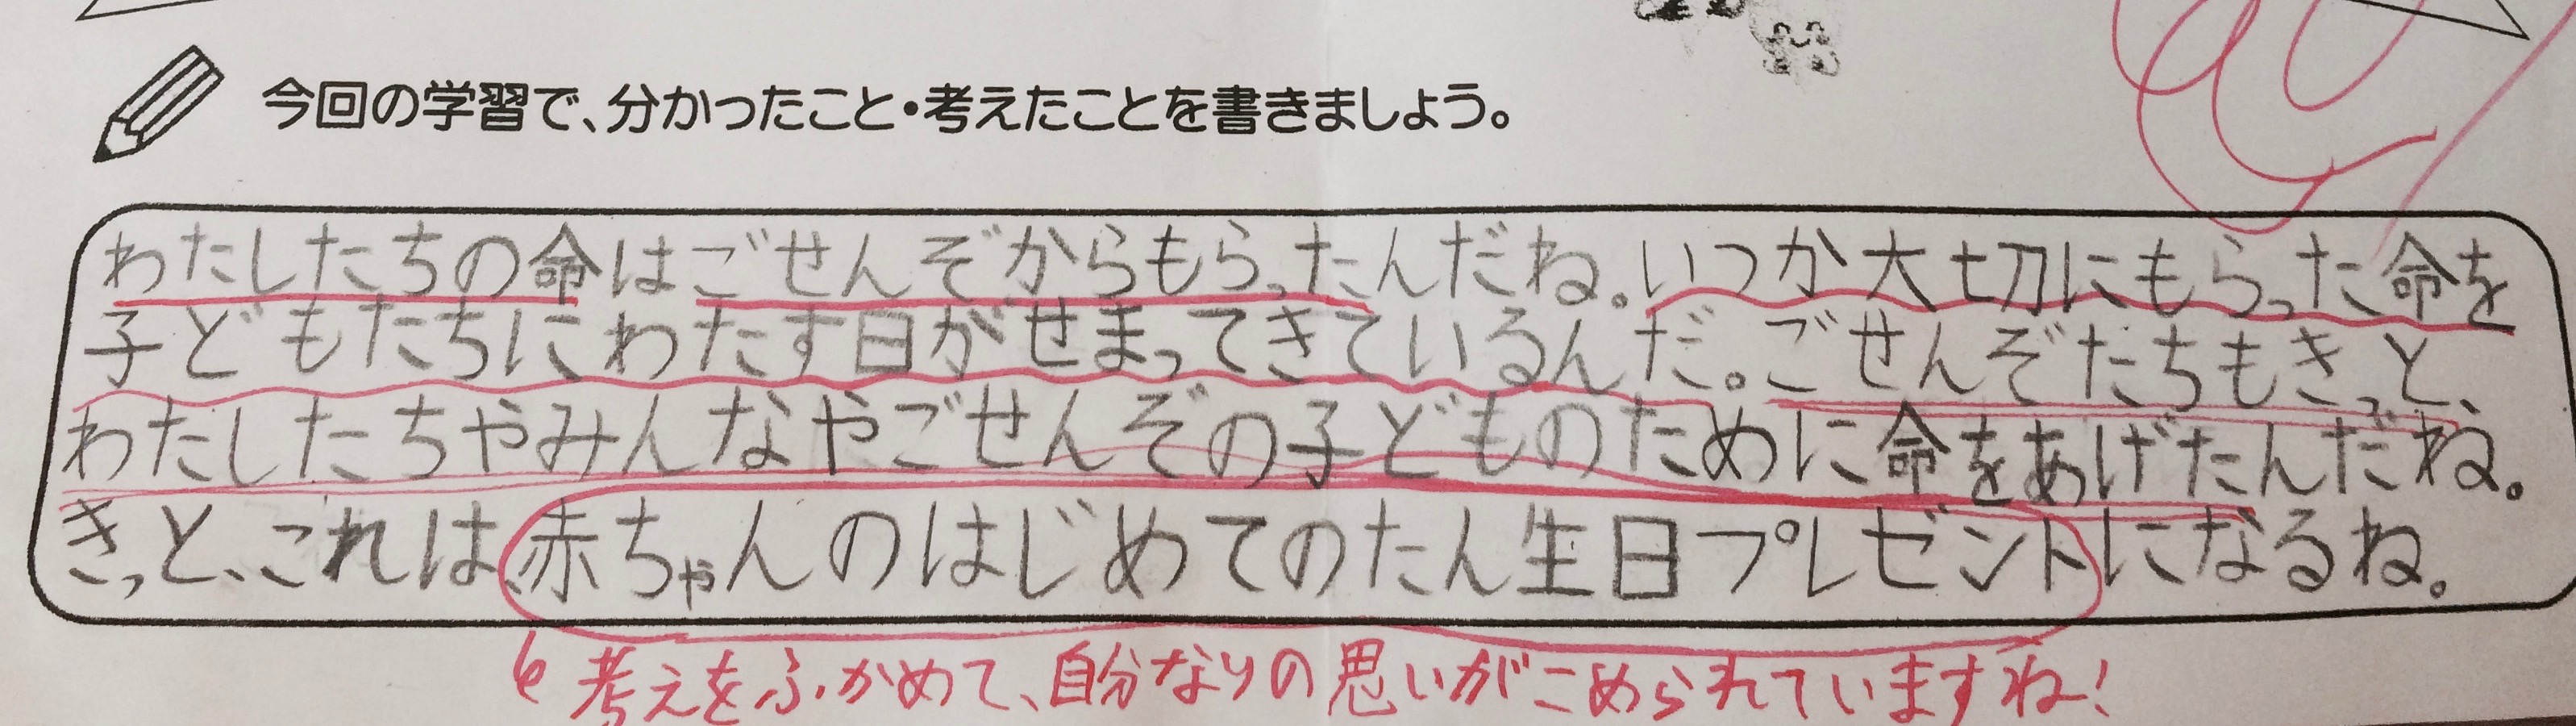 今回の学習で、分かったこと・考えたことを書きましょう。
わたしたちの命はごせんぞからもらったんだね。いつか大切にもらった命を
子どもたちにわたす日がせまってきているんだ。ごせんぞたちもきっと、
わたしたちやみんなやごせんぞの子どものために命をあげたんだね。
きっと、これは、赤ちゃんのはじめてのたん生日プレゼントになるね。
考えをふかめて、自分なりの思いがこめられていますね!